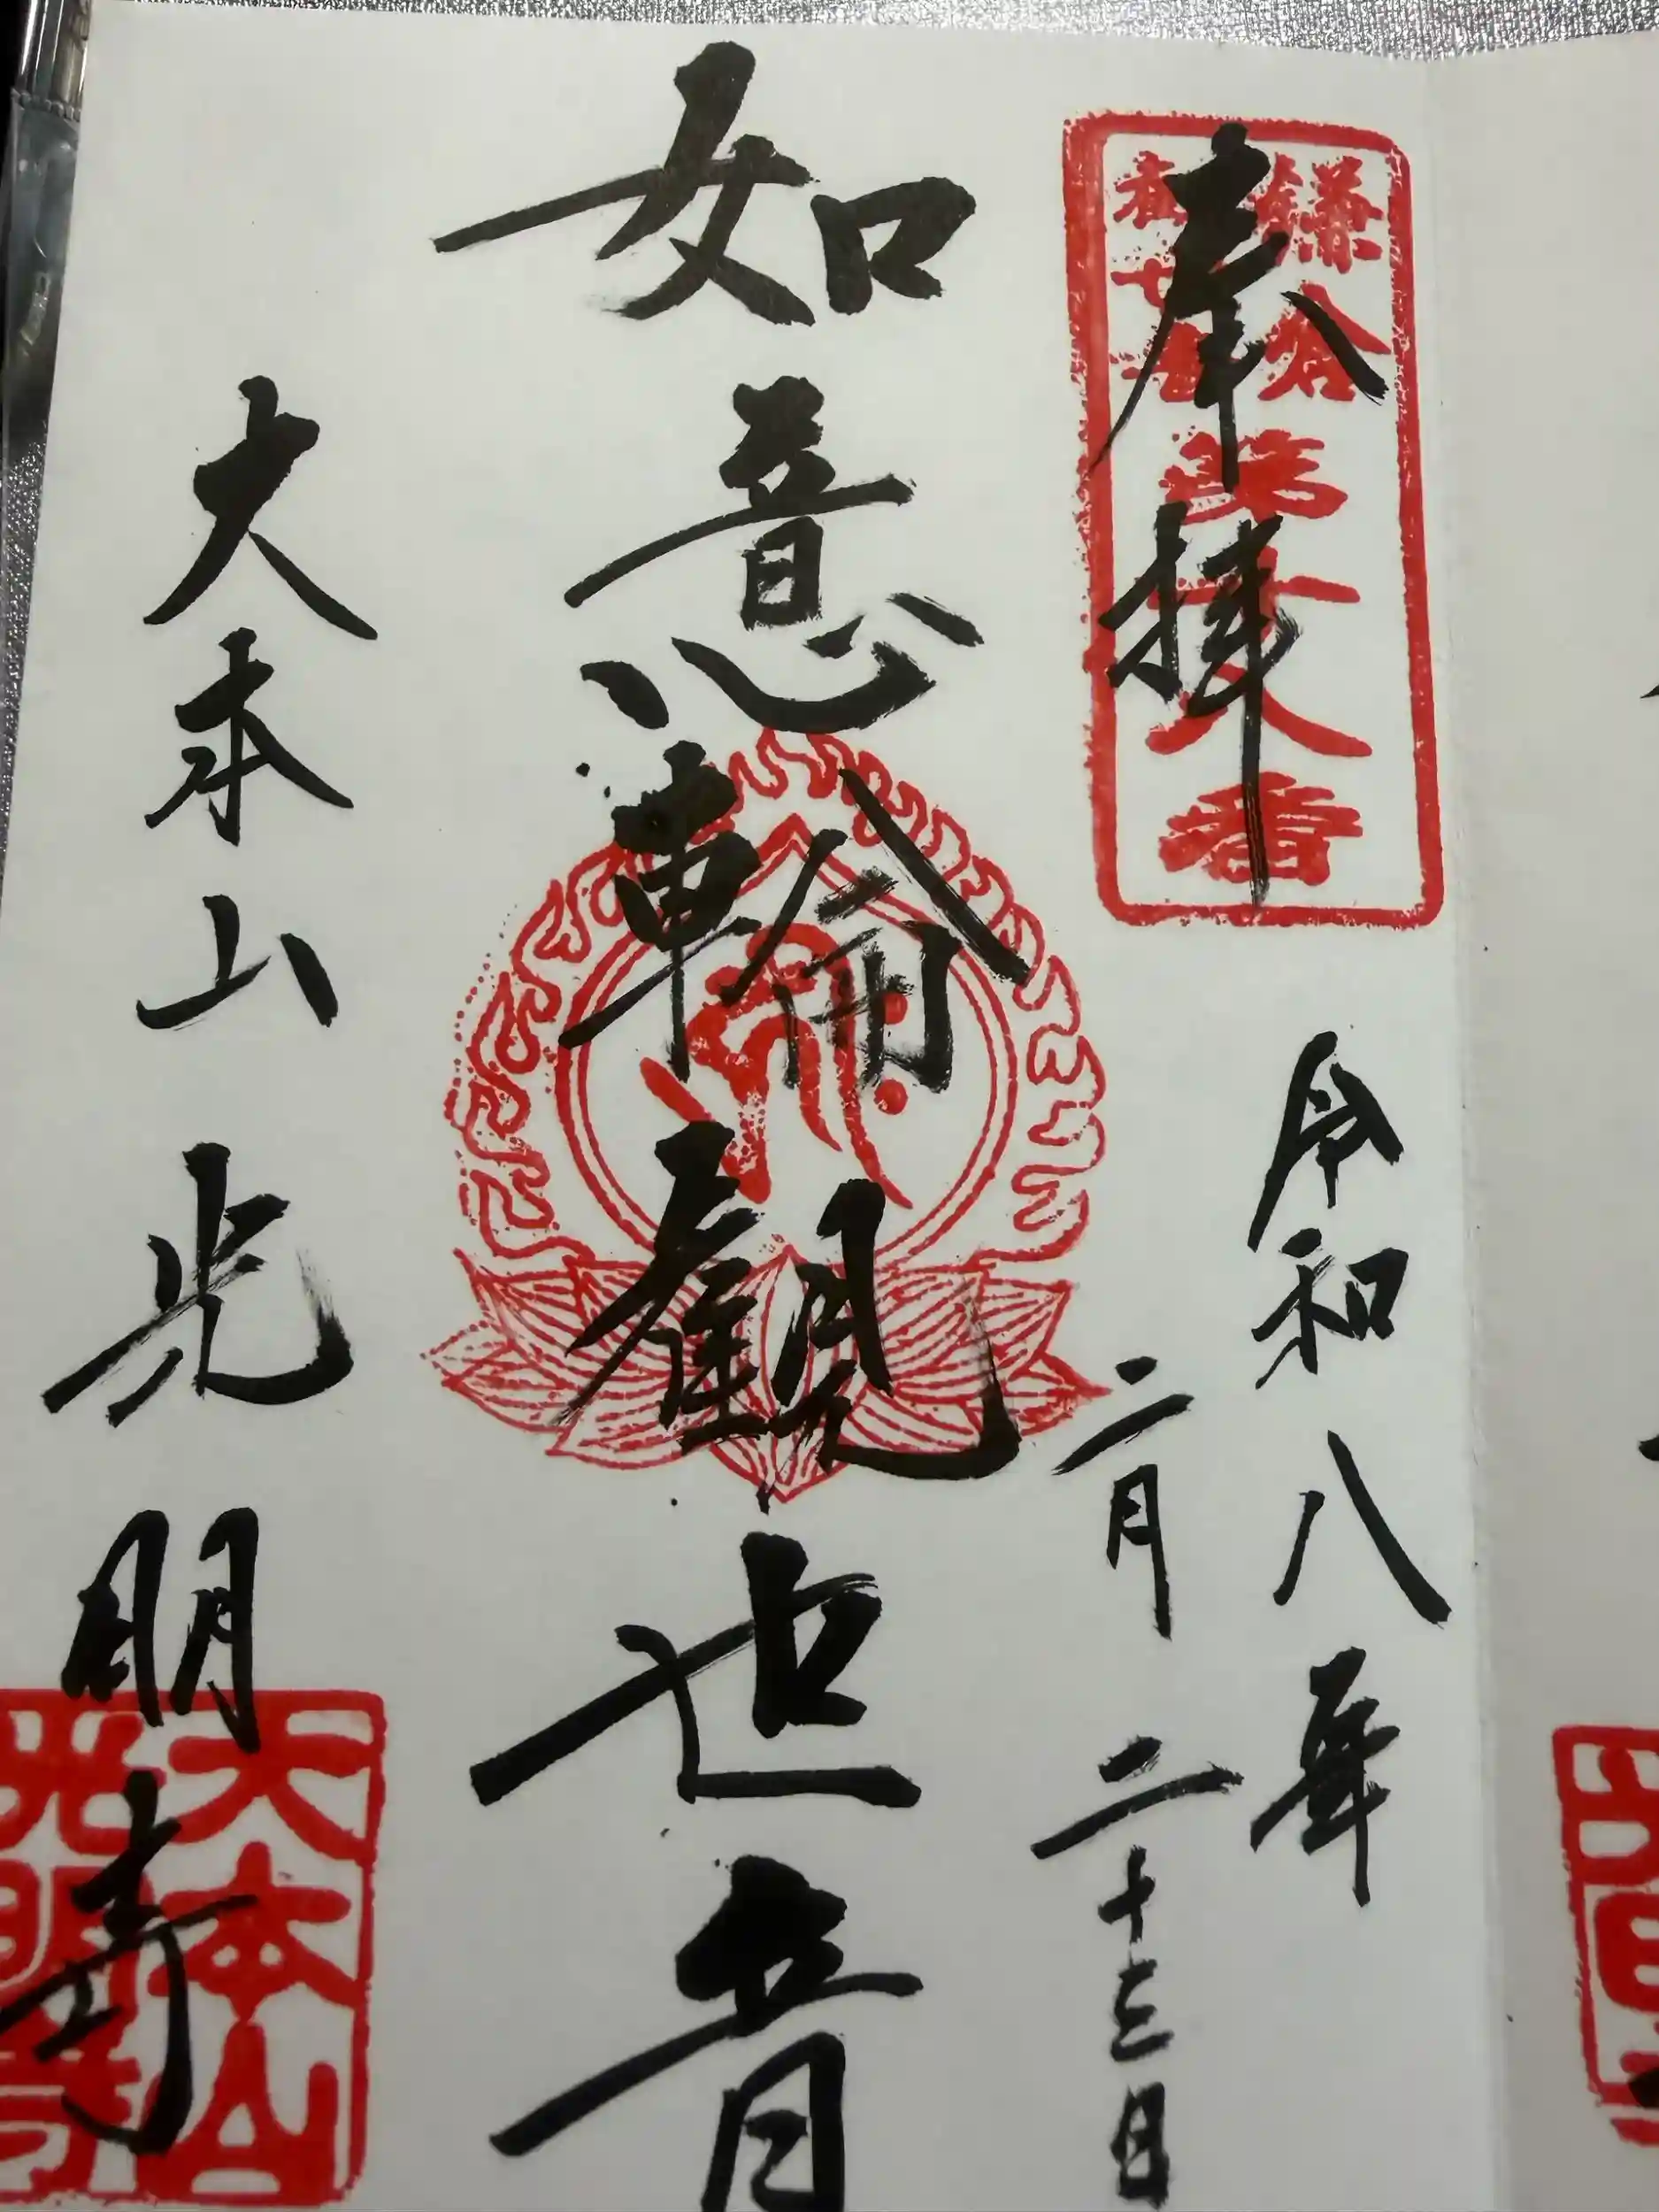 鎌倉
第十八番
奉拝
令和八年
二月二十三日
如意輪觀世音
大本山光明寺
大本山
光明寺